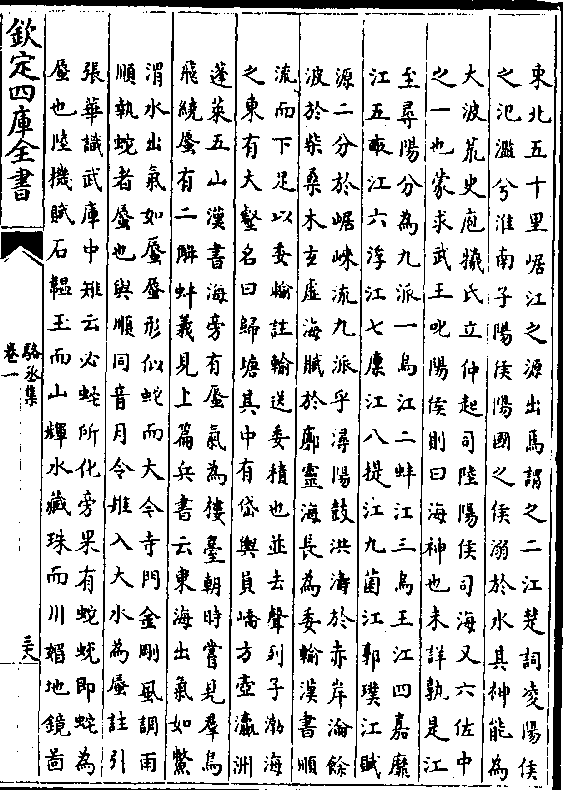 東北五十里崌江之源出焉謂之二江楚詞凌陽侯
之氾濫兮淮南子陽侯陽國之侯溺於水其神能為
大波荒史庖犧氏立仲起司陸陽侯司海又六佐中
之一也蒙求武王叱陽侯則曰海神也未詳孰是江
至尋陽分為九派一烏江二蚌江三烏王江四嘉靡
江五畎江六浮江七廪江八提江九菌江郭璞江賦
源二分於崌崍流九派乎潯陽鼓洪濤於赤岸淪餘
波於柴桑木玄虛海賦於廓靈海長為委輸漢書順
流而下足以委輸註輸送委積也並去聲列子渤海
之東有大壑名曰歸塘其中有岱輿員嶠方壺瀛洲
蓬萊五山漢書海旁有蜃氣為樓臺朝時嘗見羣鳥
飛繞蜃有二解蚌義見上篇兵書云東海出氣如鱉
渭水出氣如蜃蜃形似蛇而大今寺門金剛風調雨
順執蛇者蜃也與順同音月令雉入大水為蜃註引
張華識武庫中雉云必蛇所化旁果有蛇蛻即蛇為
蜃也陸機賦石韞玉而山輝水藏珠而川媚地鏡圖
欽定四庫全書
駱丞集
卷一
三六